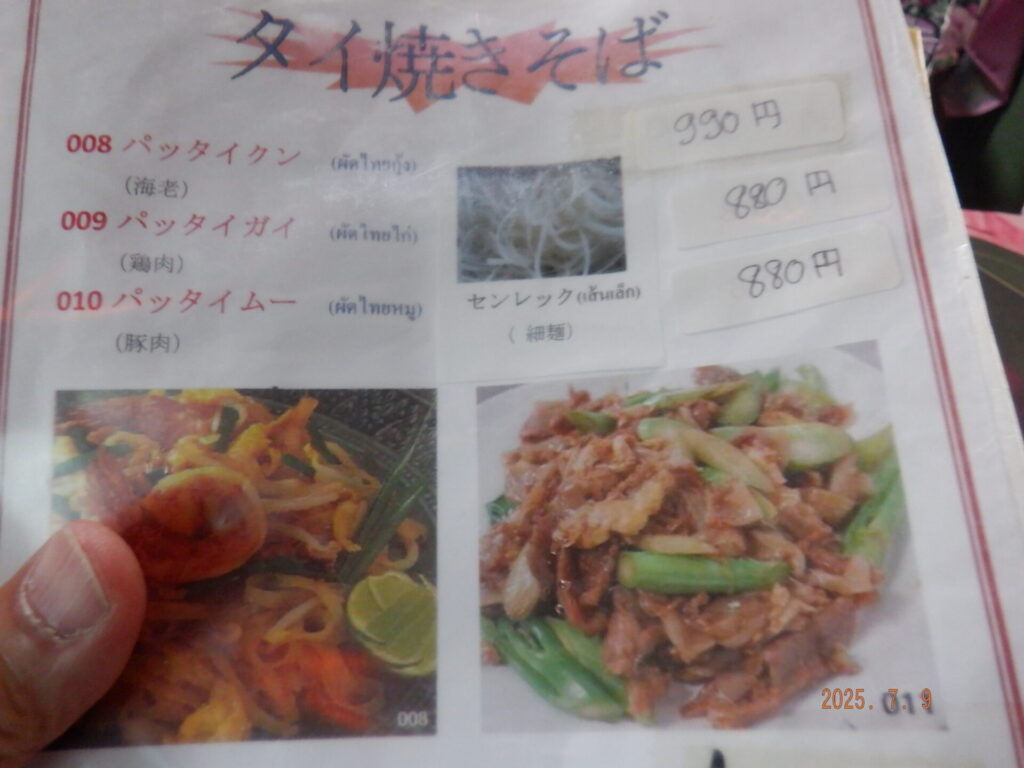 タイ焼きそば
008 パッタイクン (ผัดไทยกุ้ง) 990円
(海老)
009 パッタイガイ (ผัดไทยไก่) 880円
(鶏肉)
010 パッタイムー (ผัดไทยหมู) 880円
(豚肉)
センレック(เส้นเล็ก)
( 細麺)
008
011
2025. 7. 9